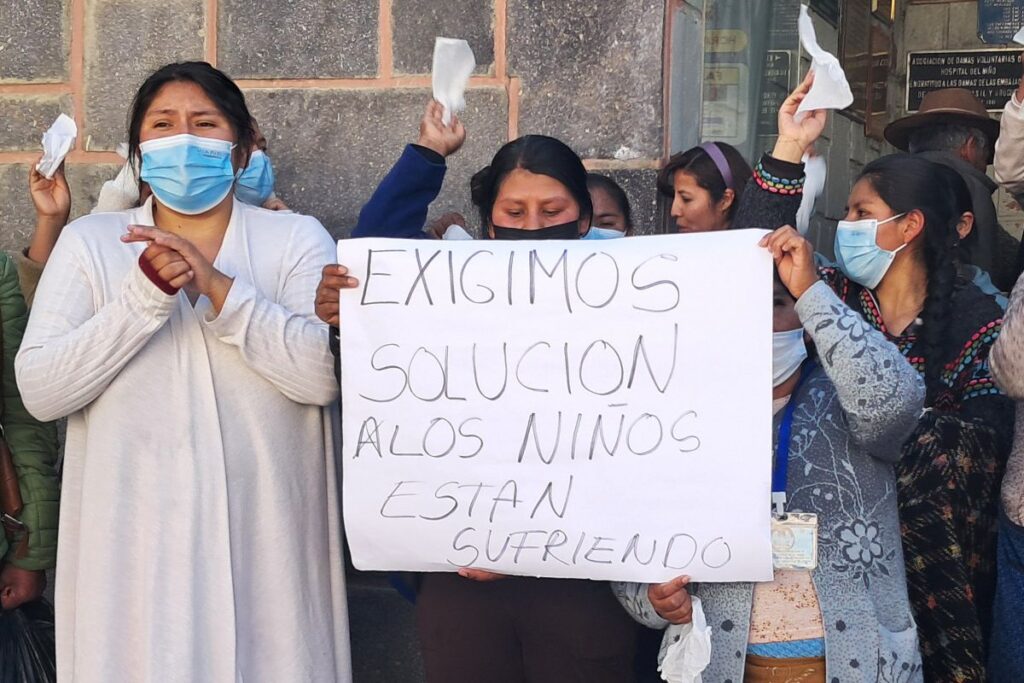 EXIGIMOS
SOLUCION
A LOS NIÑOS
ESTAN
SUFRIENDO
ASOCIACION DE DAMAS VOLUNTARIAS
HOSPITAL DEL NIÑO